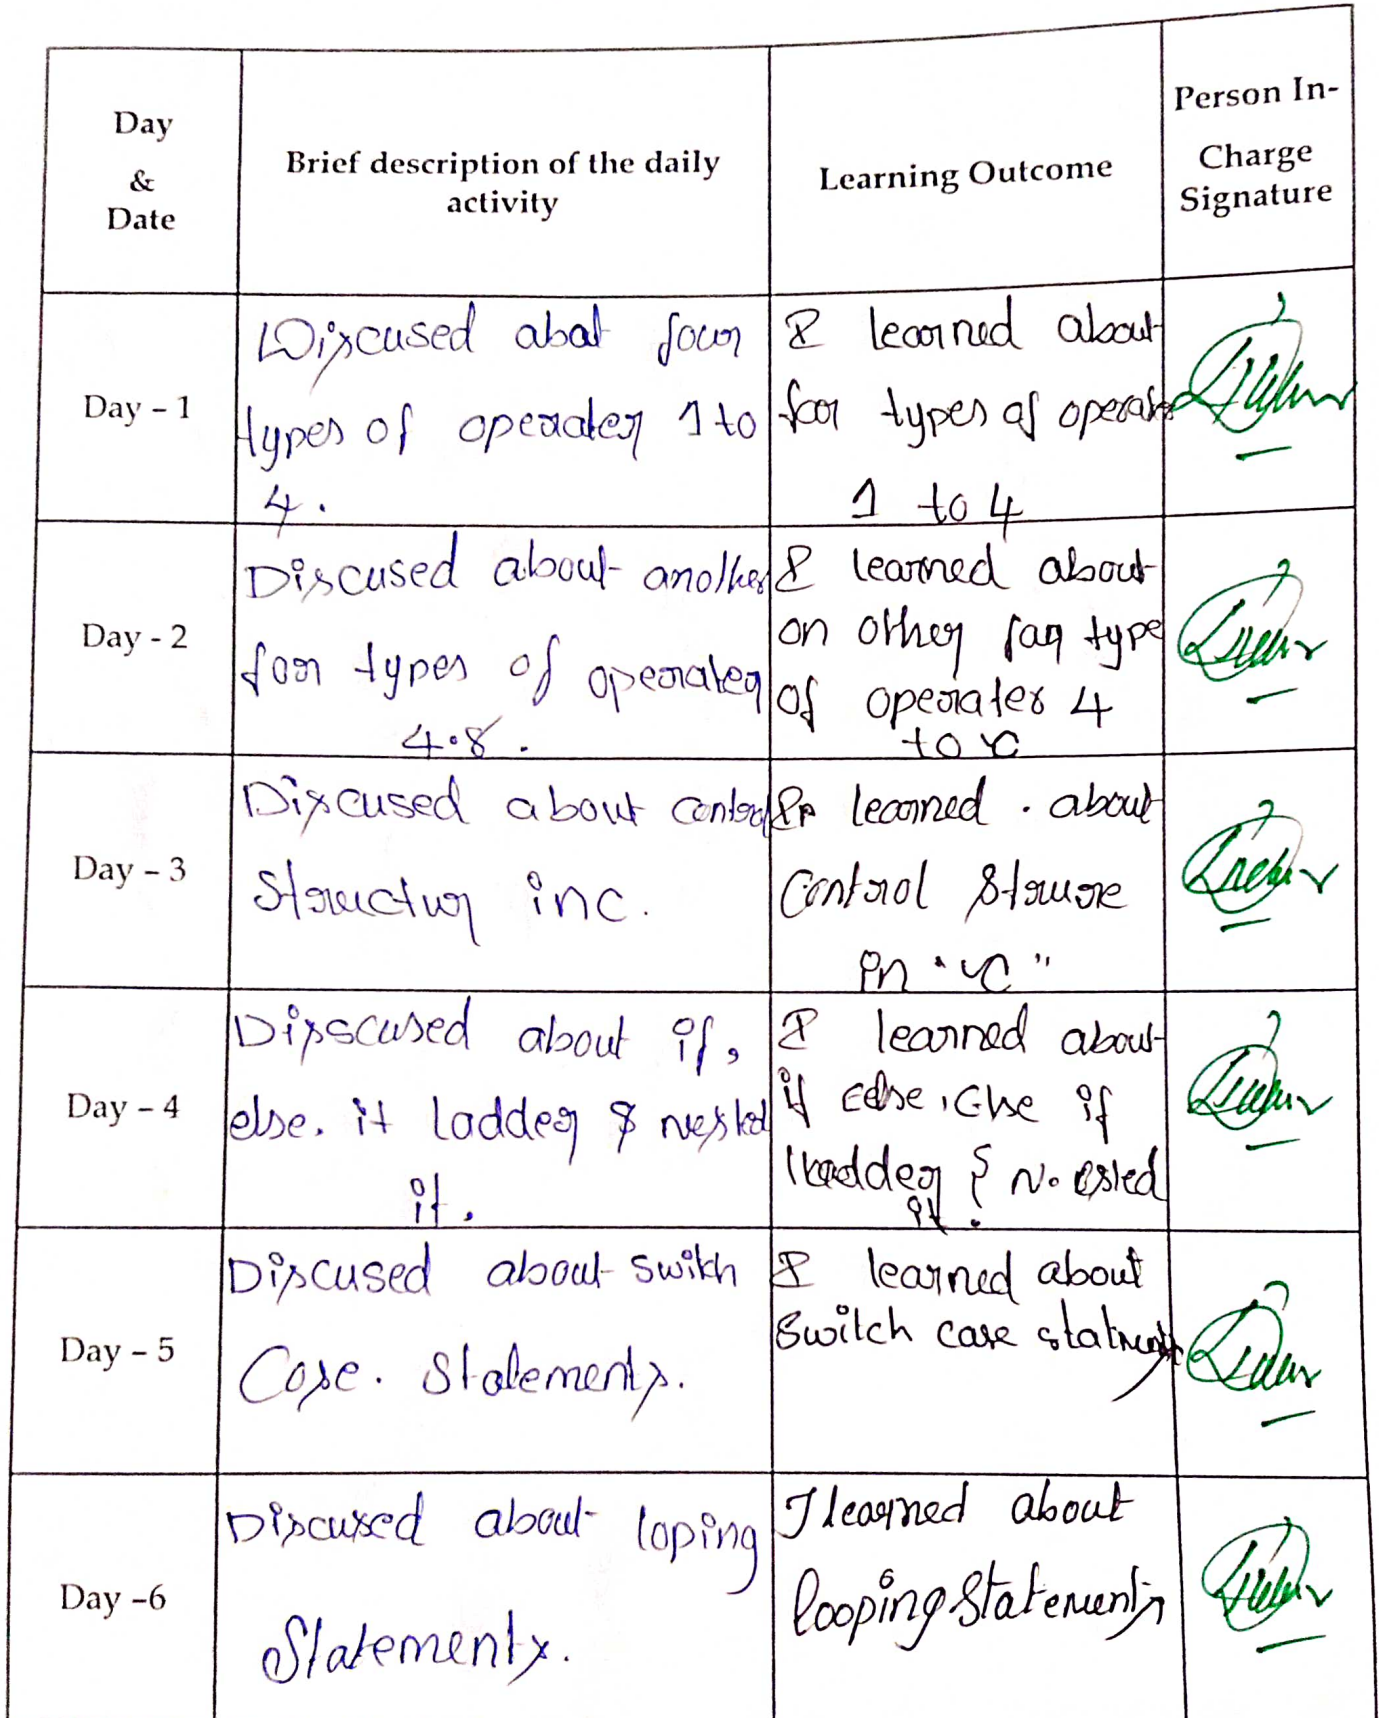 Day
&
Date
Brief description of the daily
activity
Learning Outcome
Person In-
Charge
Signature
Day – 1
Discused abat four
types of operater 1 to
4.
I learned about
foor types of operater
1 to 4
Day - 2
Discused about another
foor types of operater
4.8.
I learned about
on other four type
of operater 4
to
Day – 3
Discused about control
structur inc.
I learned . about
Control
in "C"
Day – 4
Disscused about if,
else. if ladder & nested
if.
I learned about
if else, else if
ladder & nested
if.
Day – 5
Discused about switch
Case. Statements.
I learned about
Switch case
Day –6
Discused about loping
Statements.
I learned about
looping Statements